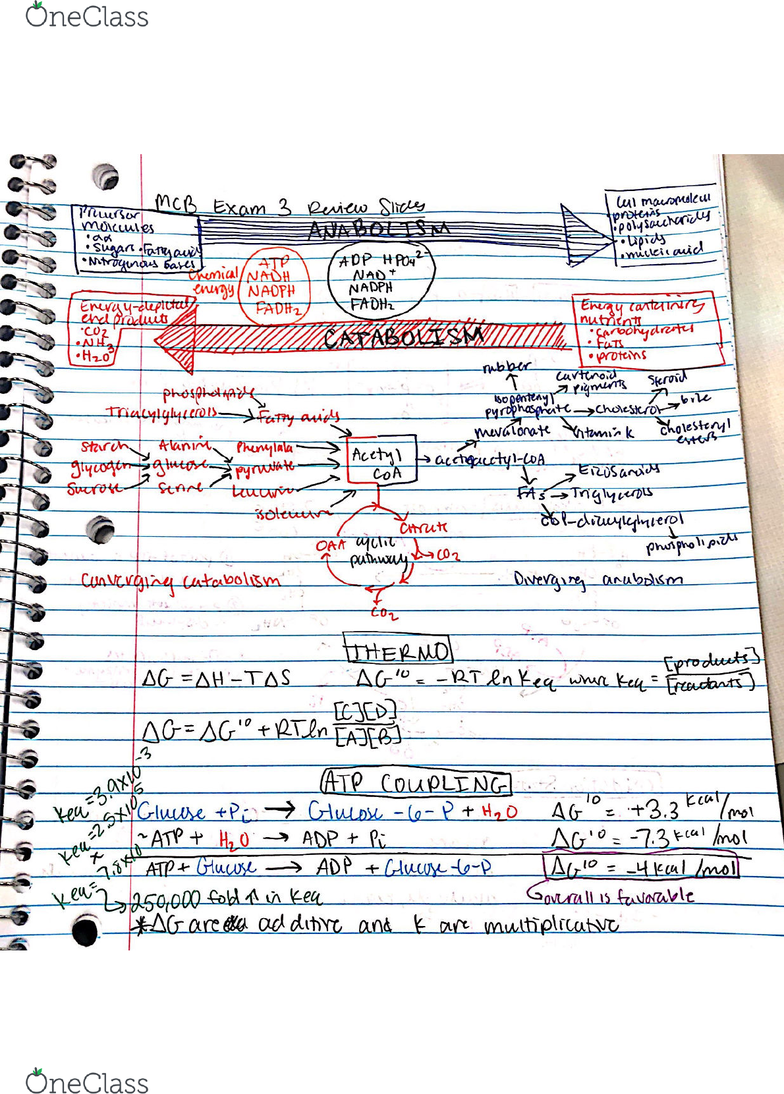 OneClass
MCB Exam 3 Review Slides
Precursor
molecules
• aa
• Sugars • Fatty acid
• Nitrogenous bases
ANABOLISM
Cell macromolecul
proteins
• polysaccharids
• lipids
• nucleic acid
Chemical
energy
ATP
NADH
NADPH
FADH2
ADP HPO4 2-
NAD+
NADPH
FADH2
Energy-depleted
end products
• CO2
• NH3
• H2O
CATABOLISM
Energy containing
nutrients
• carbohydrates
• Fats
• proteins
phospholipids
Triacylglycerols → Fatty acids
Starch Alanine Phenylala
glycogen → glucose → pyruvate
Sucrose Serine Leucine
isoleucine
Acetyl
CoA
→ acetoacetyl-CoA
rubber
isopentenyl
pyrophosphate → cholesterol → bile
carotenoid
pigments
steroid
mevalonate
Vitamin K
cholesteryl
esters
Eicosanoids
FAs → Triglycerols
phospholipids
Citrate
OAA cyclic
pathway → CO2
CO2
Converging catabolism
Diverging anabolism
THERMO
ΔG = ΔH - TΔS ΔG'° = -RT ln Keq where Keq = [products]/[reactants]
ΔG = ΔG'° + RT ln [C][D]/[A][B]
ATP COUPLING
Keq = 3.9x10^-3 Glucose + Pi → Glucose-6-P + H2O ΔG'° = +3.3 kcal/mol
Keq = 2.5x10^5 ATP + H2O → ADP + Pi ΔG'° = -7.3 kcal/mol
ATP + Glucose → ADP + Glucose-6-P ΔG'° = -4 kcal/mol
↳ 250,000 fold ↑ in Keq
overall is favorable
*ΔG are additive and K are multiplicative
OneClass